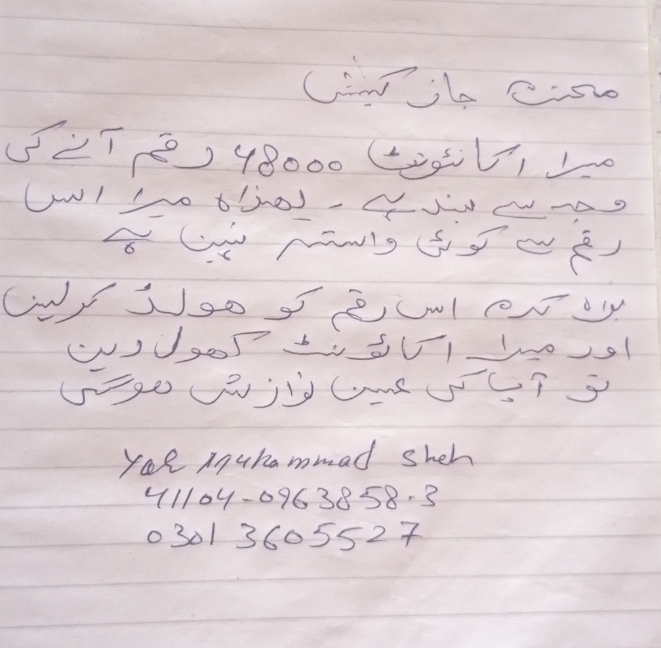 محترم جاز کیش
میرا اکائونٹ 48000 رقم آنے کی
وجہ سے بند ہے - لھذاہ میرا اس
رقم سے کوئی واستہ نہین ہے
براہ کرم اس رقم کو ھولڈ کرلین
اور میرا اکائونٹ کھول دین
تو آپ کی عین نوازش ھوگی
Yar Muhammad Sheh
41104-0963858-3
0301 3605527